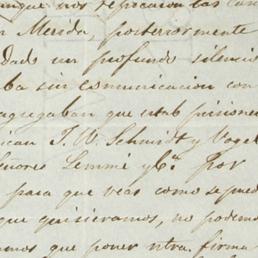 unque nos retpocaron las cun
n Merida, posteriormente
dado un profundo silencio
ba sin comunicacion con
agregaban que estab prisione
ican J. W. Schmidt y Vogel
eñores Lemmé y Cª. Por
para que veas como se pued
que quisieramos, no podemo
amos que poner ntra. firma